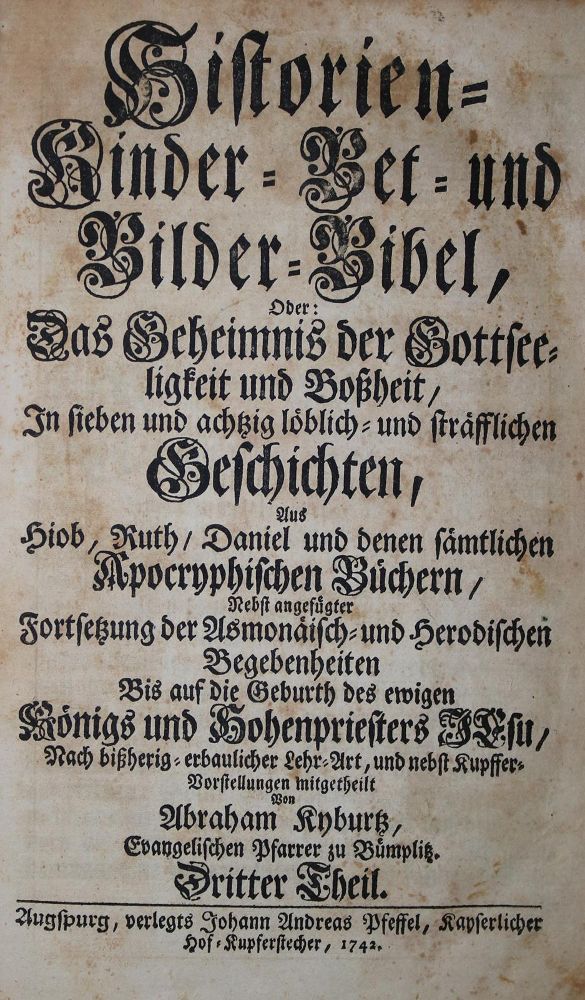 Historien-
Kinder-Bet-und
Bilder-Bibel,
Oder:
Das Geheimnis der Gottsee-
ligkeit und Boßheit,
In sieben und achtzig löblich- und sträfflichen
Geschichten,
Aus
Hiob, Ruth, Daniel und denen sämtlichen
Apocryphischen Büchern,
Nebst angefügter
Fortsetzung der Asmonäisch- und Herodischen
Begebenheiten
Bis auf die Geburth des ewigen
Königs und Hohenpriesters JEsu,
Nach bißherig-erbaulicher Lehr-Art, und nebst Kupffer-
Vorstellungen mitgetheilt
Von
Abraham Kyburtz,
Evangelischen Pfarrer zu Bümplitz.
Dritter Theil.
Augspurg, verlegts Johann Andreas Pfeffel, Kayserlicher
Hof-Kupferstecher, 1742.